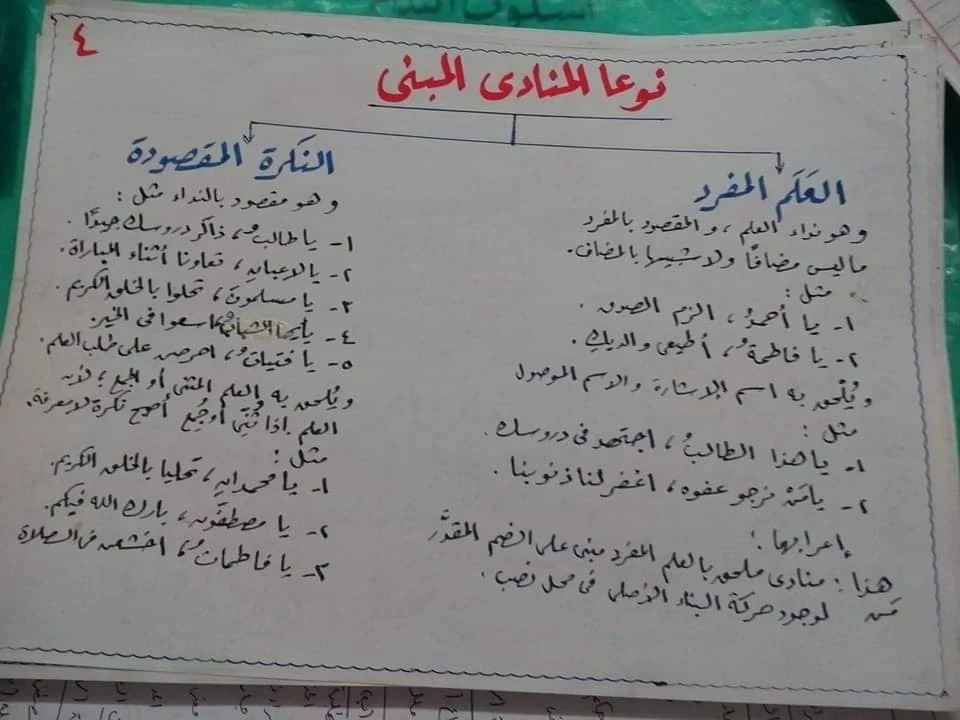 أسلوب النداء
٤
نوعا المنادى المبنى
العَلَم المفرد
وهو نداء العلم، والمقصود بالمفرد
ما ليس مضافًا ولا شبيها بالمضاف.
مثل :
١- يا أحمدُ، الزم الصدق.
٢- يا فاطمةُ، أطيعى والديكِ.
ويُلحق به اسم الإشارة والاسم الموصول
مثل :
١- يا هذا الطالبُ، اجتهد فى دروسك.
٢- يا مَنْ نرجو عفوه، اغفر لنا ذنوبنا.
إعرابها :
هذا : منادى ملحق بالعلم المفرد مبنى على الضم المقدَّر
مَن لوجود حركة البناء الأصلى فى محل نصب.
النكرة المقصودة
وهو مقصود بالنداء مثل :
١- يا طالبُ، ذاكر دروسك جيدًا.
٢- يا لاعبانِ، تعاونا أثناء المباراة.
٣- يا مسلمونَ، تحلوا بالخلق الكريم.
٤- يأيها الشبابُ، اسعوا فى الخير.
٥- يا فتياتُ، احرصن على طلب العلم.
ويُلحق به العلم المثنى أو الجمع؛ لأن
العلم إذا ثُنِّى أو جُمِع أصبح نكرة لا معرفة.
مثل :
١- يا محمدانِ، تحليا بالخلق الكريم.
٢- يا مصطفَون، بارك الله فيكم.
٣- يا فاطماتُ، اخشعن فى الصلاة